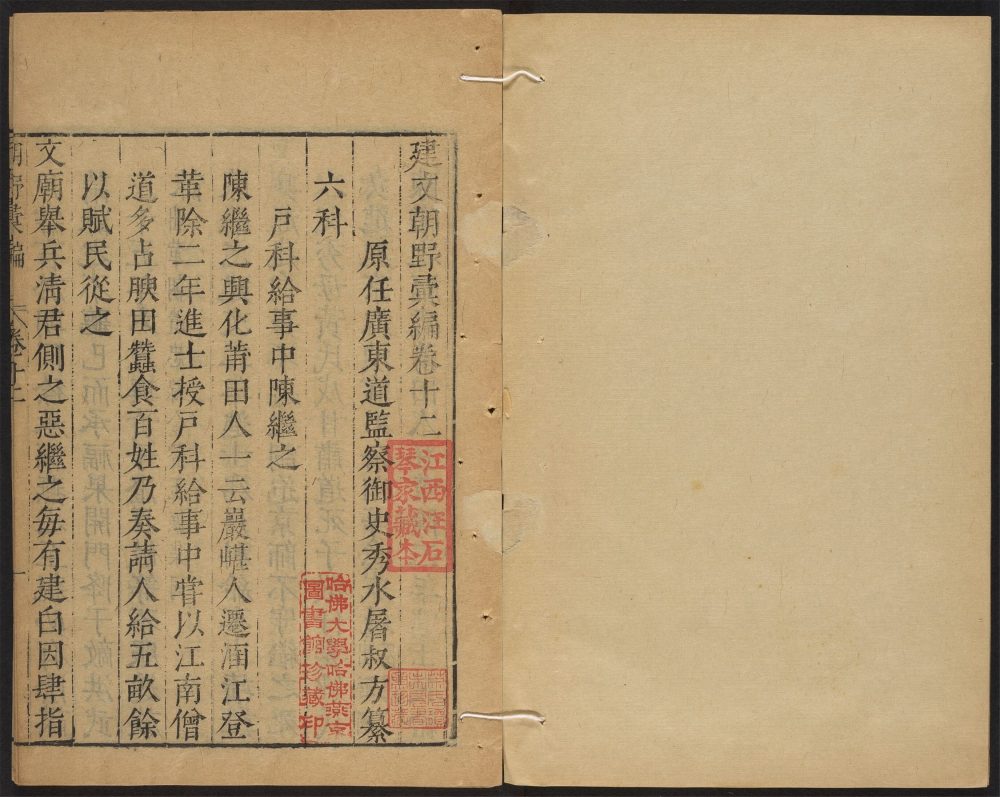 建文朝野彙編卷十二
原任廣東道監察御史秀水屠叔方纂
六科
戸科給事中陳繼之
陳繼之興化莆田人一云巖嵁人遷涵江登
革除二年進士授戸科給事中嘗以江南僧
道多占腴田蠶食百姓乃奏請人給五畝餘
以賦民從之
文廟舉兵清君側之惡繼之每有建白因肆指
朝野彙編 卷十二 一
江西汪石
琴家藏本
哈佛大學哈佛燕京
圖書館珍藏印